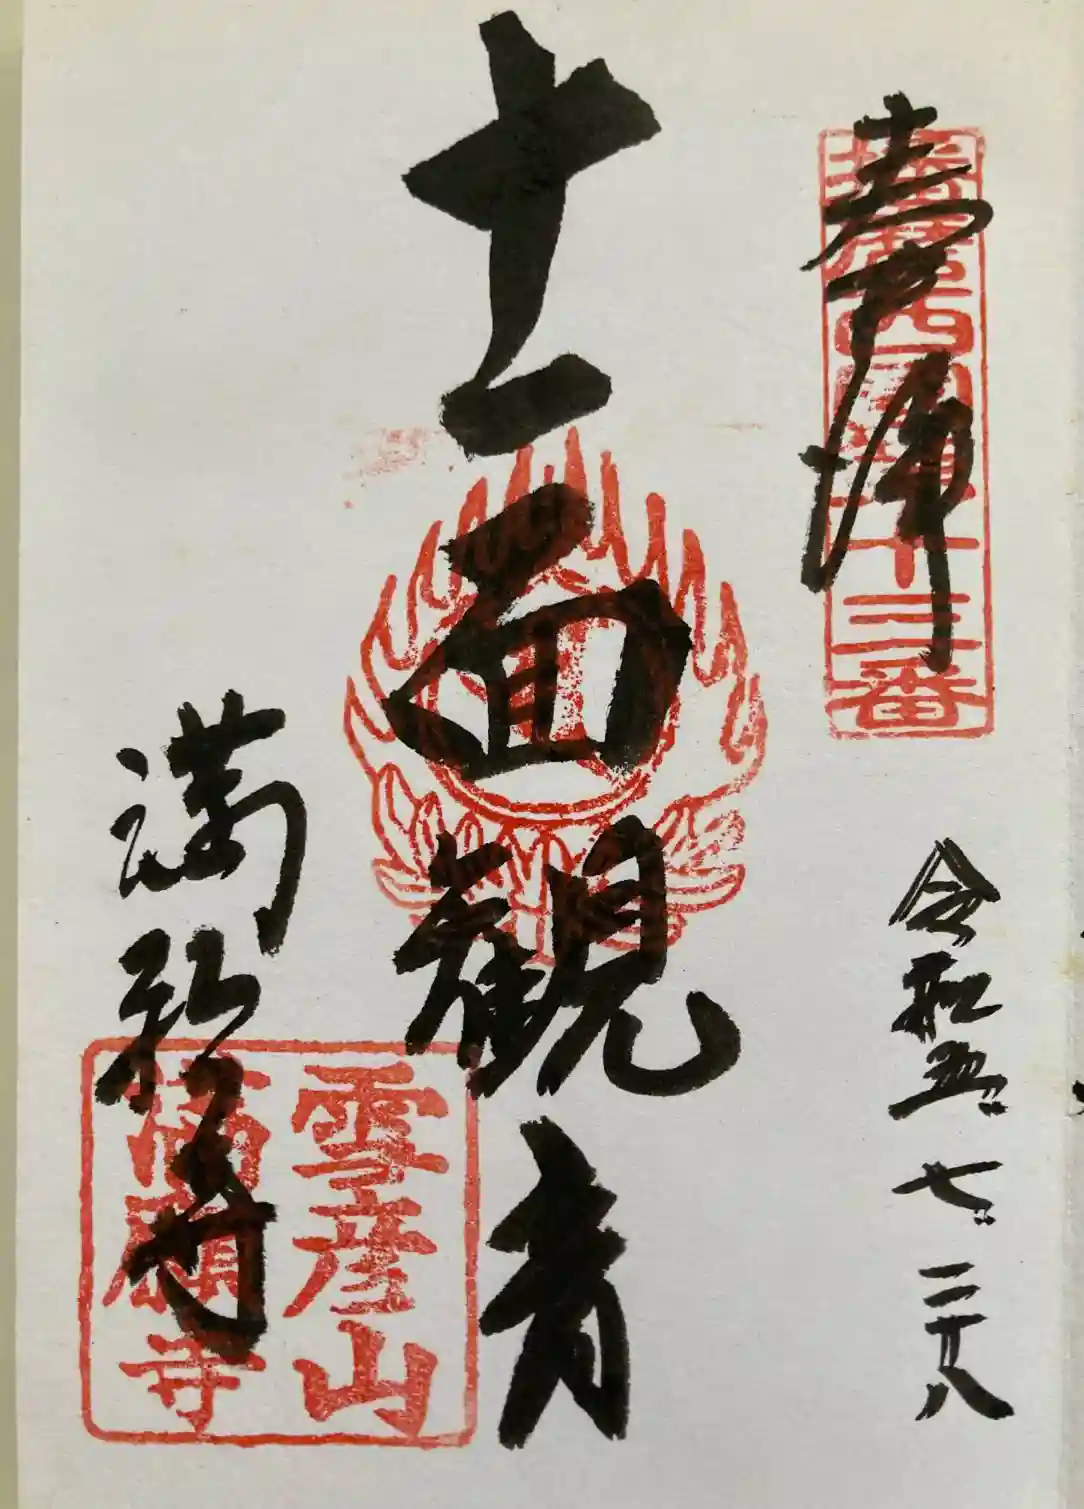 奉拝
播磨西國第十三番
令和五.七.二十八
十一面観音
満願寺
雪彦山
満願寺